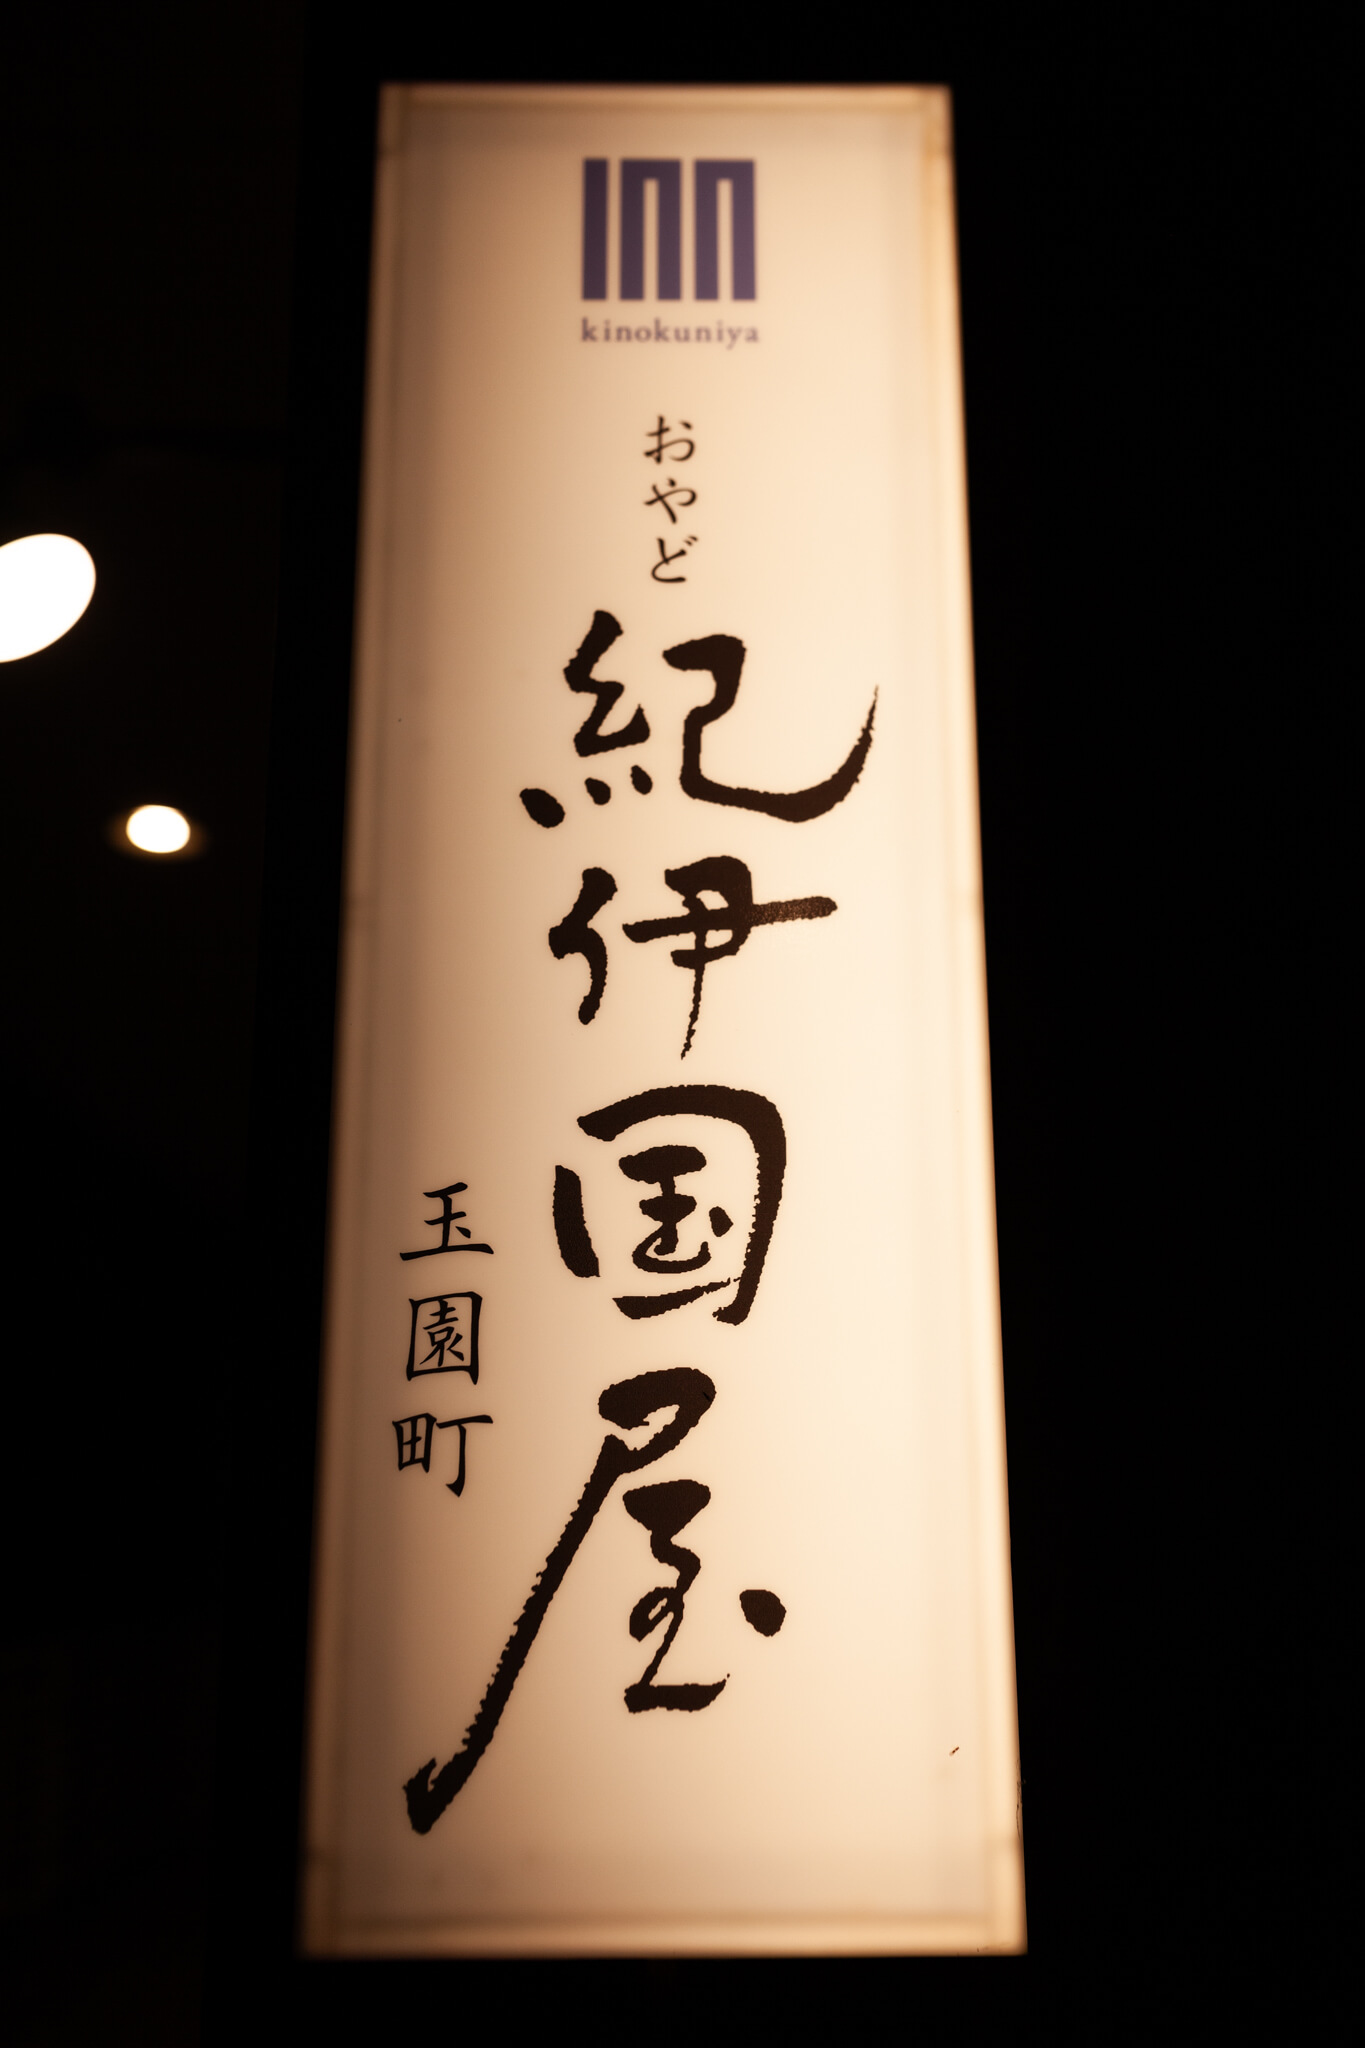 INN
kinokuniya
おやど
紀伊国屋
玉園町